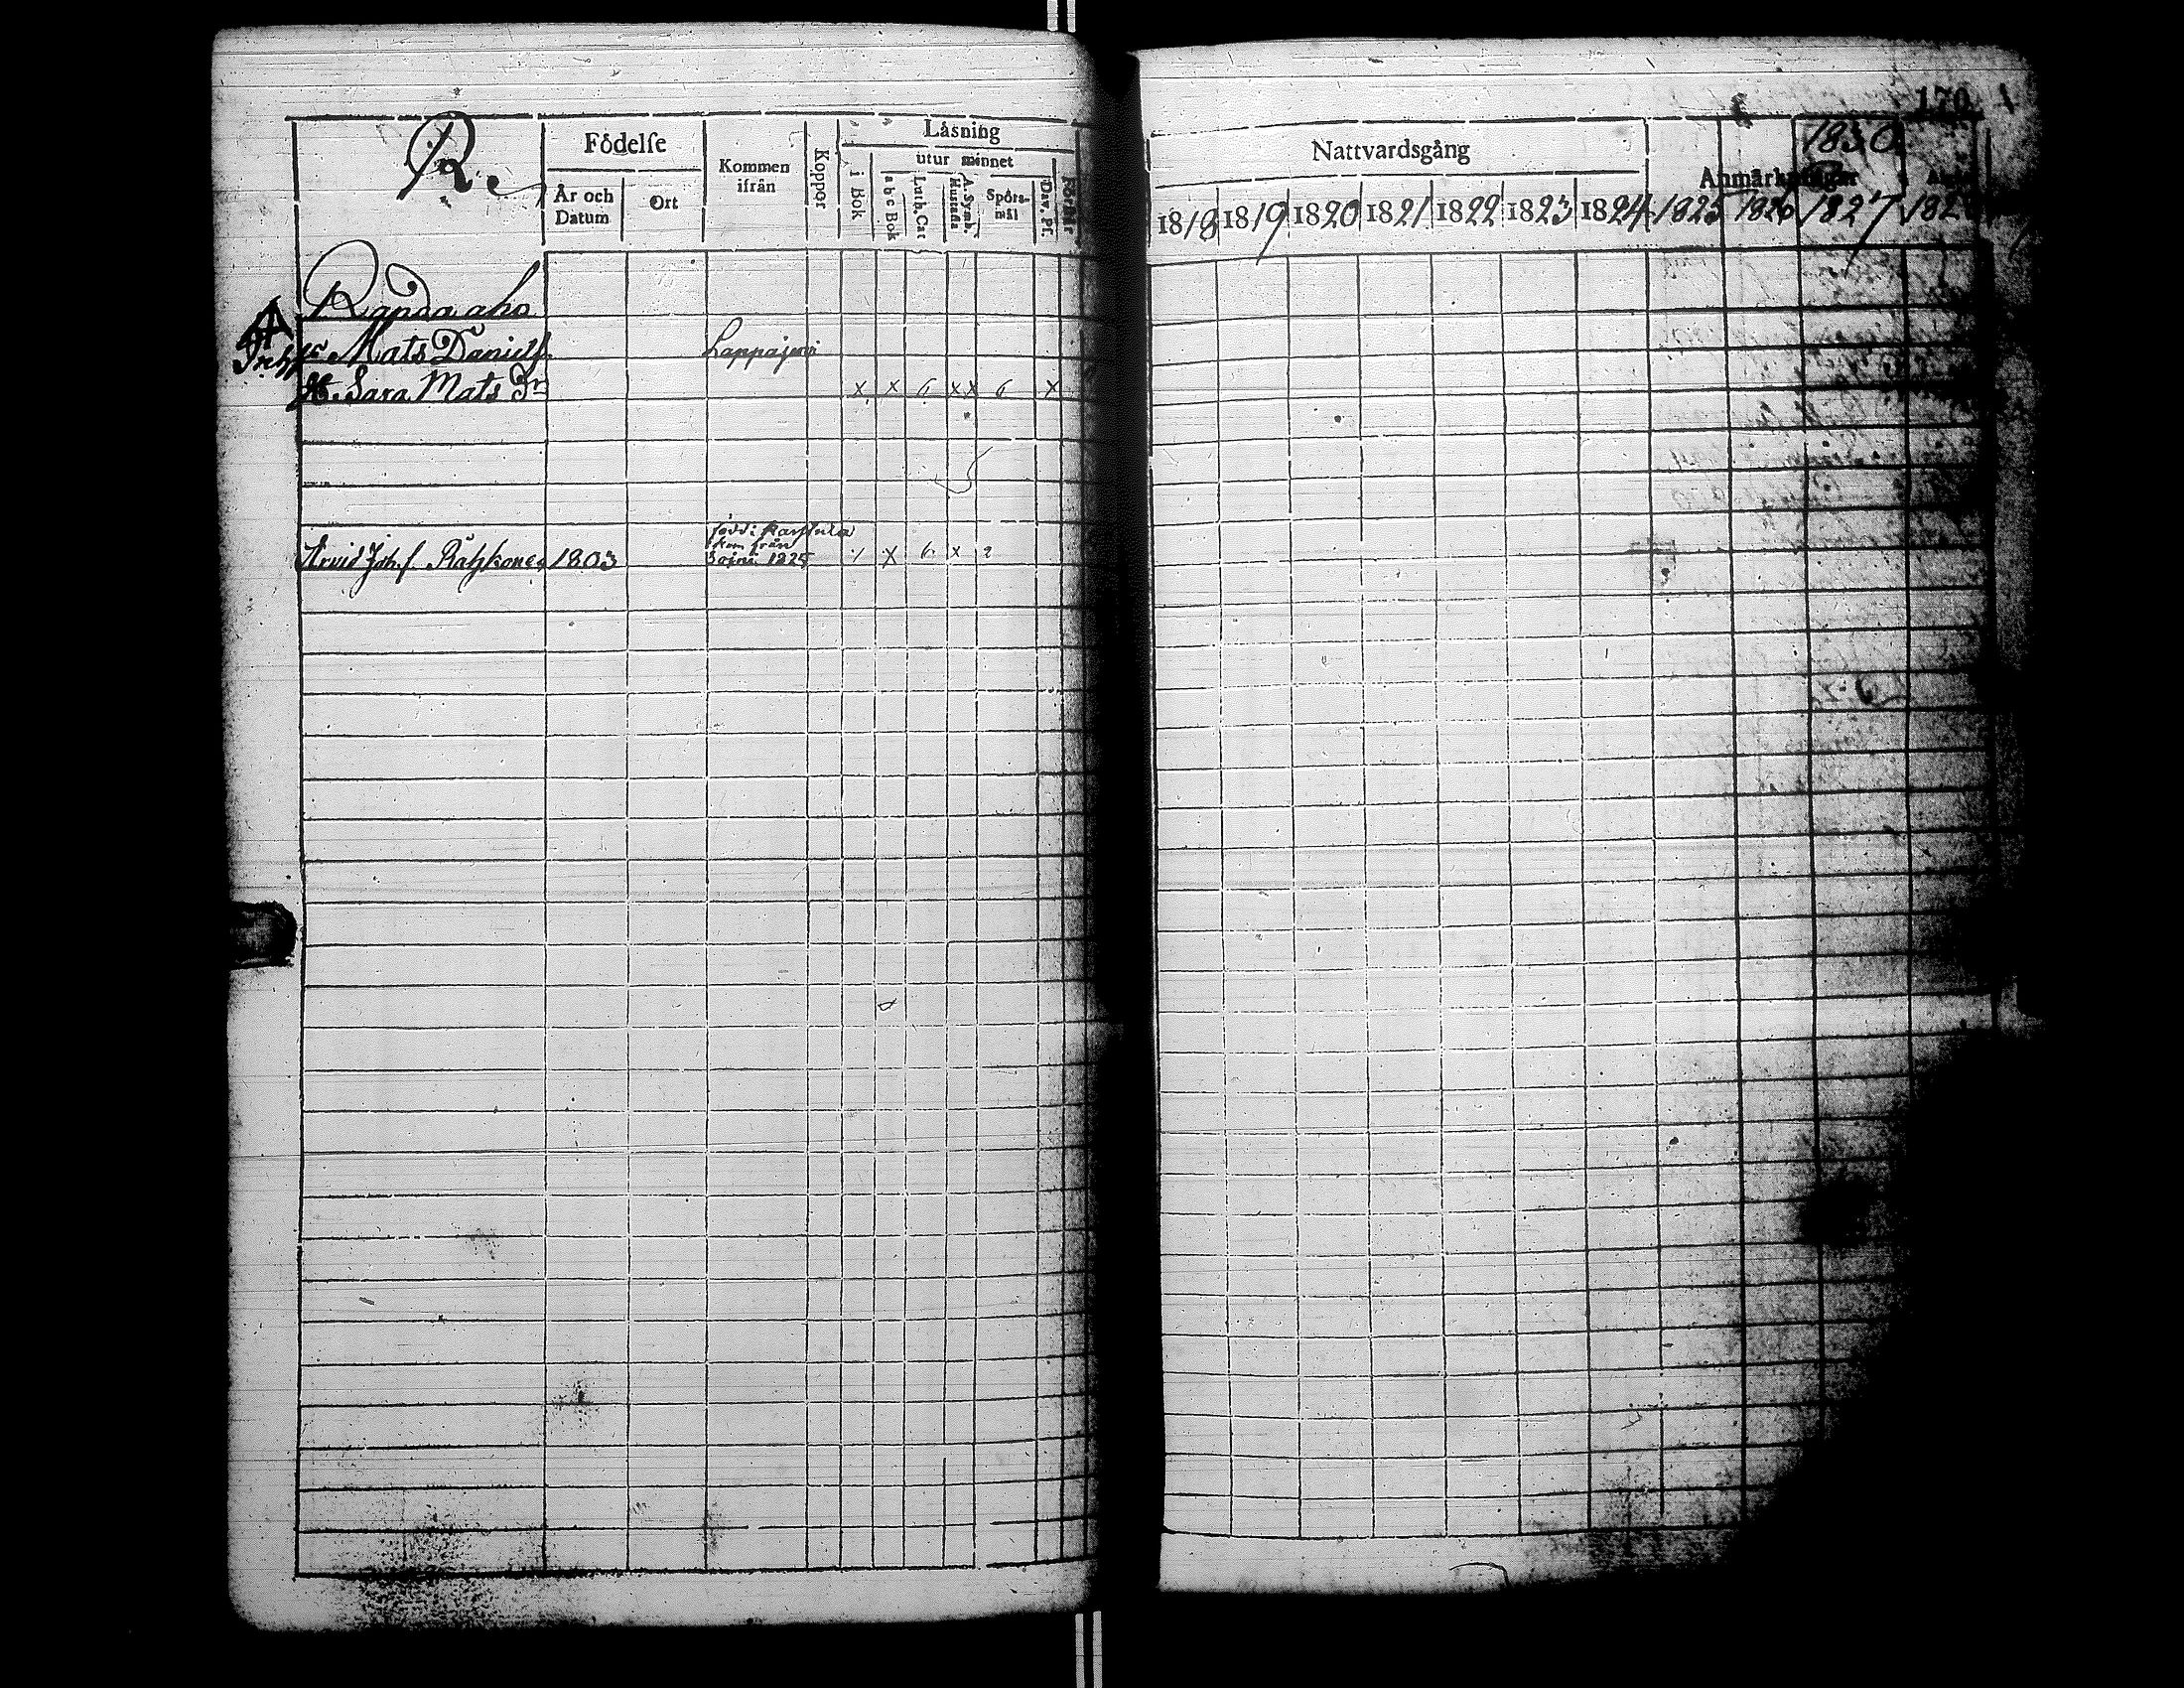 170
R.
Födelse
År och Datum
Ort
Kommen ifrån
Koppor
Läsning
i Bok
utur minnet
a b c Bok
Luth. Cat
A. Symb.
Hustafla
Spörsmål
Dav. Ps.
Nattvardsgång
1818 1819 1820 1821 1822 1823 1824 1825 1826 1827 182
1830
Mats Daniels. Lappajervi
H. Sara Mats Dr x x 6 x x 6 x
Arvid Joh. s. 1803 född i
kom från
1825 x 6 x 2